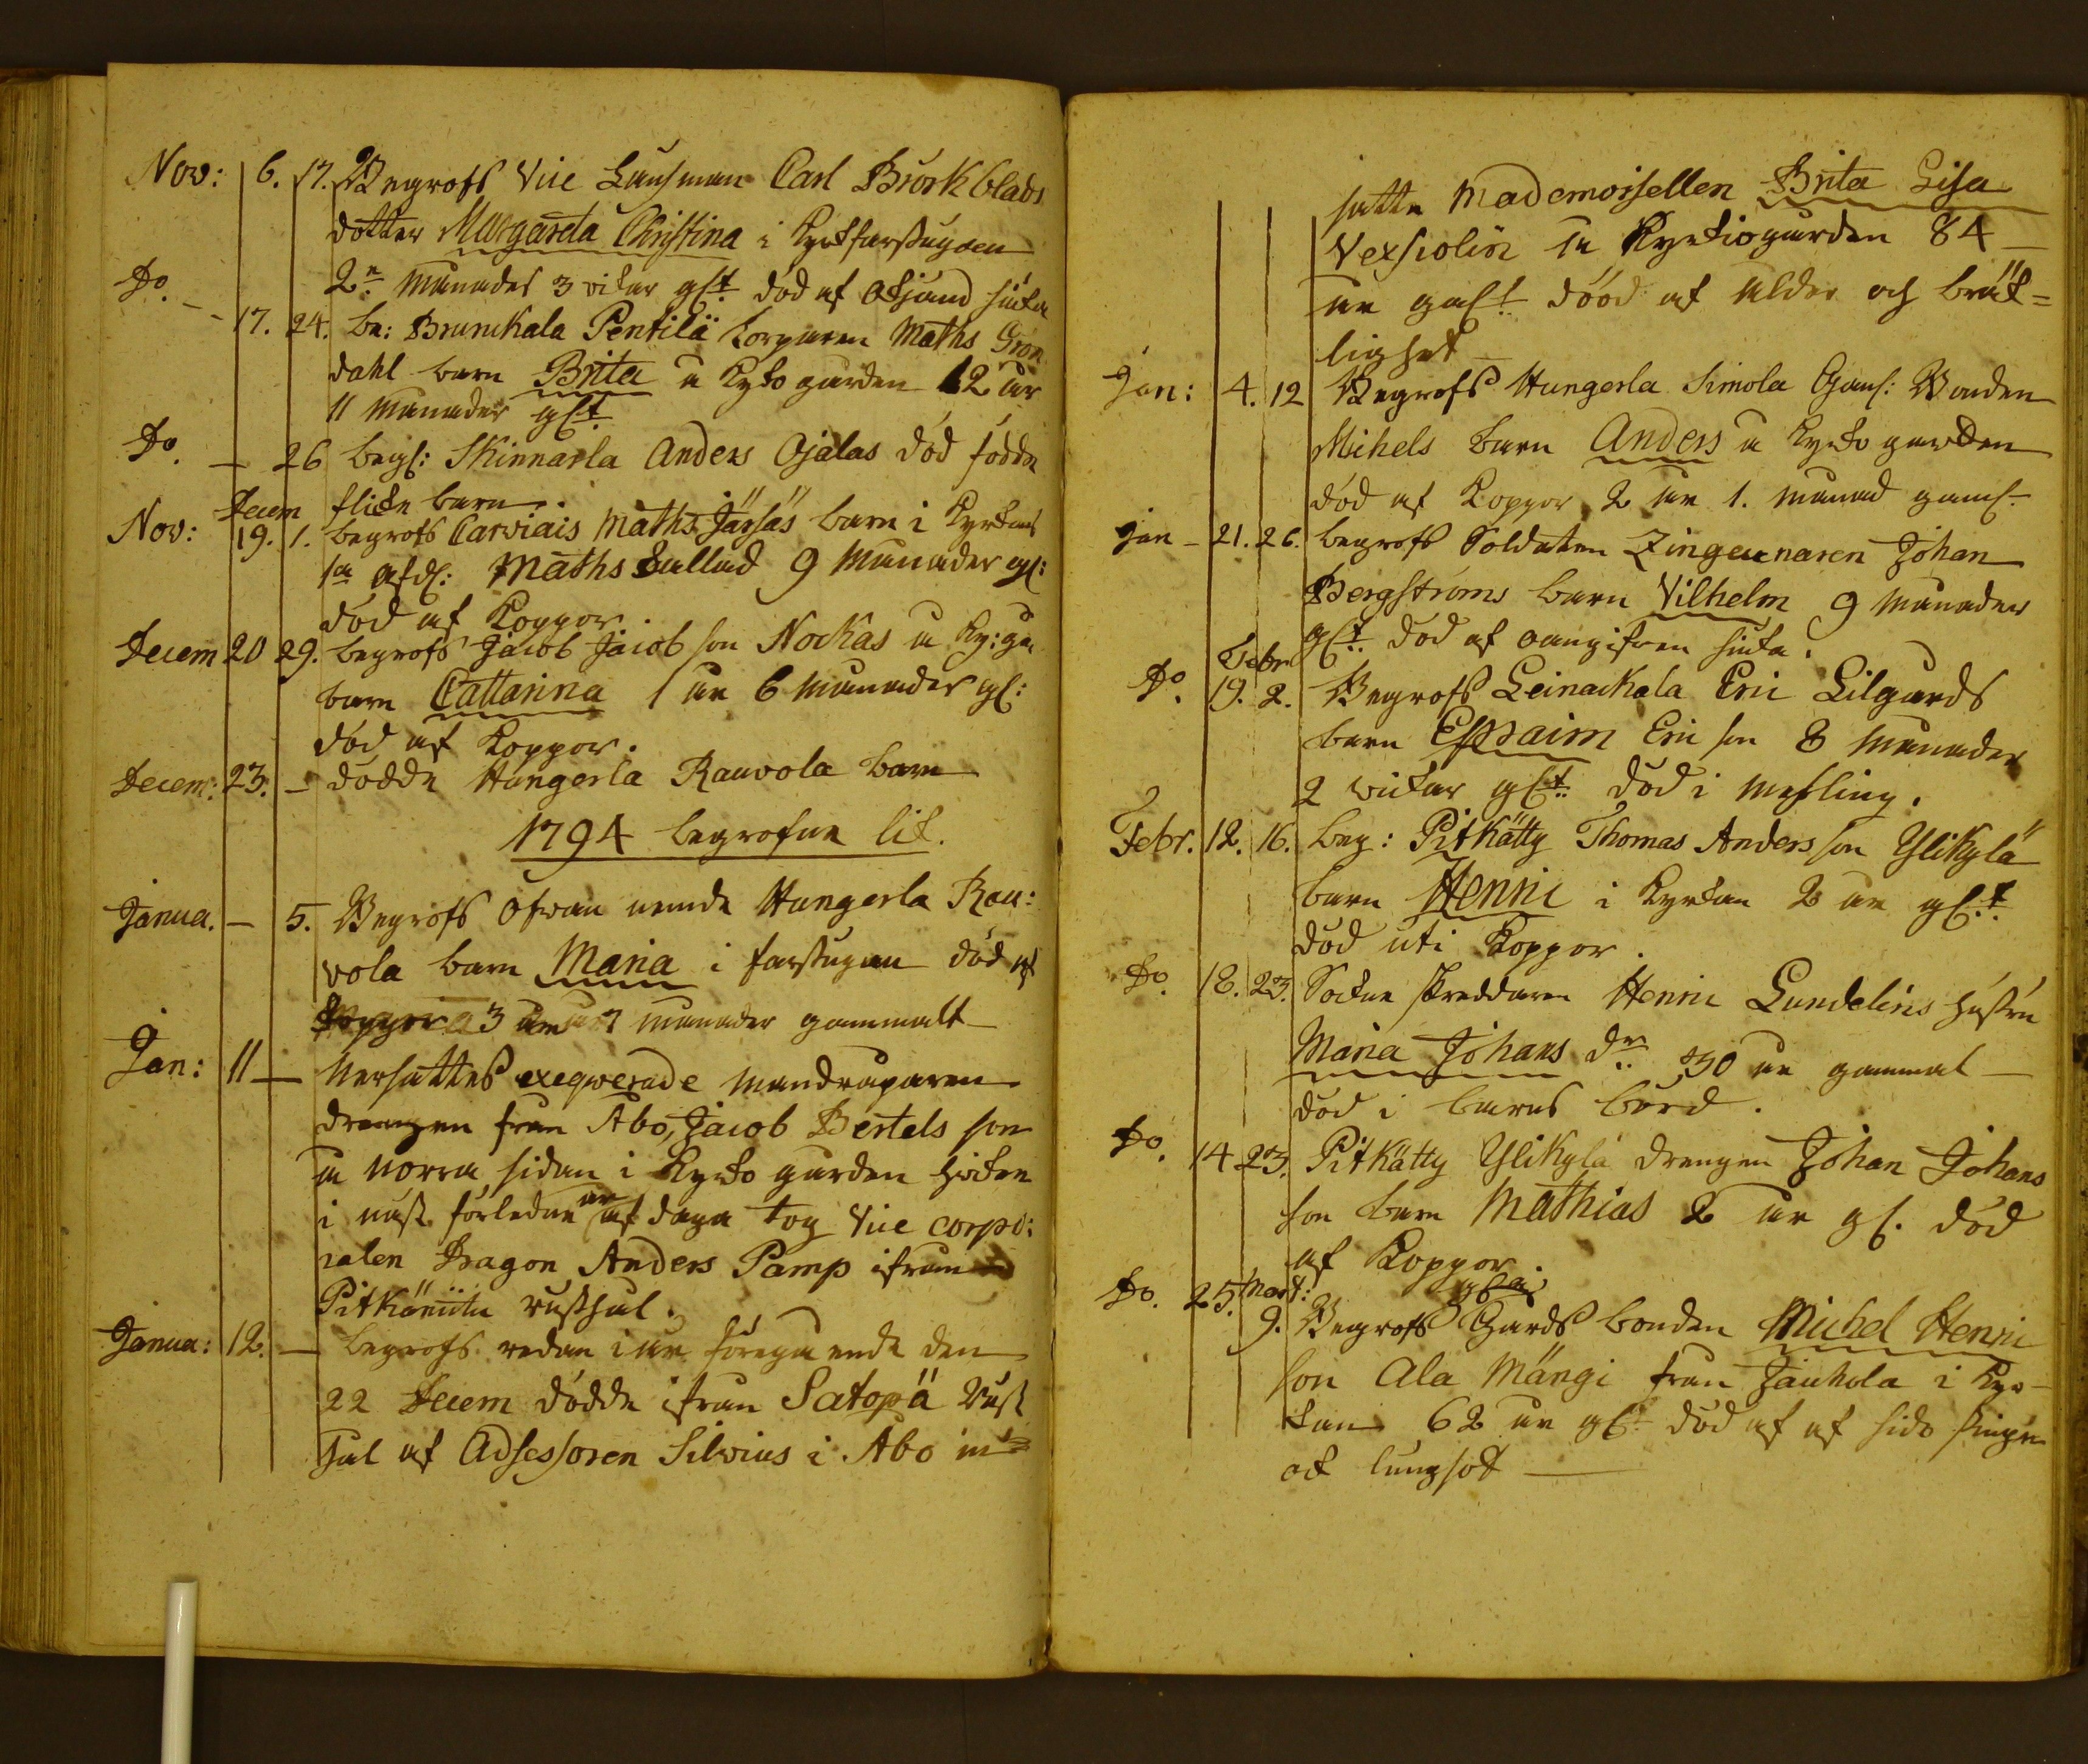 Nov: 6. 17. Begrofs Vice Länsman Carl Björkblads
dotter Margareta Christina i Kyrkfarstugaen
2ne månader 3 vikor glt död af okjand siuka
Do. – 17. 24. be: Brunckala Pentilä torparen Maths Grön
dahl barn Brita å Kyrko gården 12 år
11 månader glt
Do. — 26 begr: Skinnarla Anders Ojalas död födda
flicke barn.
Nov: 19. Decem 1. begrofs Carviais Maths Järsäs barn i Kyrkans
1a afd: Maths kallad 9 månader gl:
död af Koppor
Decem 20 29. begrofs Jacob Jacob son Nockas å Ky: gå
barn Cattarina 1 år 6 månader gl:
död af Koppor.
Decem: 23. – dödde Hungerla Rauvola barn
1794 begrofne lik.
Janua. – 5. Begrofs ofvan nemde Hungerla Rau:
vola barn Maria i farstugan död af
Koppor 3 år månader gammalt
Jan: 11 — Nersattes exeqwerade mandråparen
drengen från Åbo, Jacob Bertels son
å norra sidan i Kyrko gården hvilken
i näst förledne år af daga tog Vice corpo:
ralen Dragon Anders Pamp ifrån
Pitkäniitu rusthål.
Janua: 12. — begrofs redan i år föregå ende den
22 Decem dödde ifrån Satopä Rust
hål af Adsessoren Silvius i Åbo in=
satte Mademoisellen Brita Lisa
Vexiolin på Kyrkiogården 84
år gaslt dööd af ålder och bräk=
lighet
Jan: 4. 12 Begrofs Hungerla Simola Bonden
Michels barn Anders å Kyrko gården
död af Koppor 2 år 1. månad gaml
Jan – 21. 26. begrofs Soldaten Zingeunaren Johan
Bergströms barn Vilhelm 9 månader
glt död af oangifven siuka.
Do. 19. Febr 2. Begrofs Leinackala Eric Lilgards
barn Effraim Eric son 8 månader
2 vickor glt död i mesling.
Febr. 12. 16. beg: Pitkätty Thomas Anders son Ylikylä
barn Henric i Kyrkan 2 år glt
död uti Koppor.
Do. 18. 23. Sokne skreddaren Henric Lundelins hustru
Maria Johans dr 30 år gammal
död i barns börd.
Do. 14 23. Pitkätty Ylikylä drengen Johan Johans
son barn Mathias 2 år gl. död
af Koppor
Do. 25. Mart: 9. Begrofs Gårds bonden Michel Henric
son Ala Mängi från Jauhola i Kyr–
kan 62 år glt död af af sido
ock lungsot —